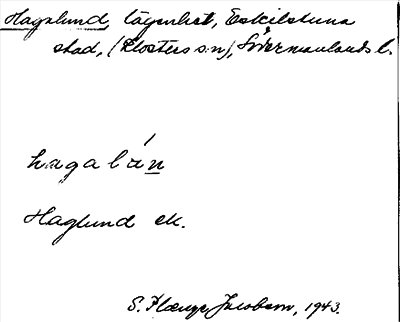 Hagalund, lägenhet, Eskilstuna
stad, (Klosters s:n), Södermanlands l.
hagalún
Haglund ek.
S. Jacobson, 1943.